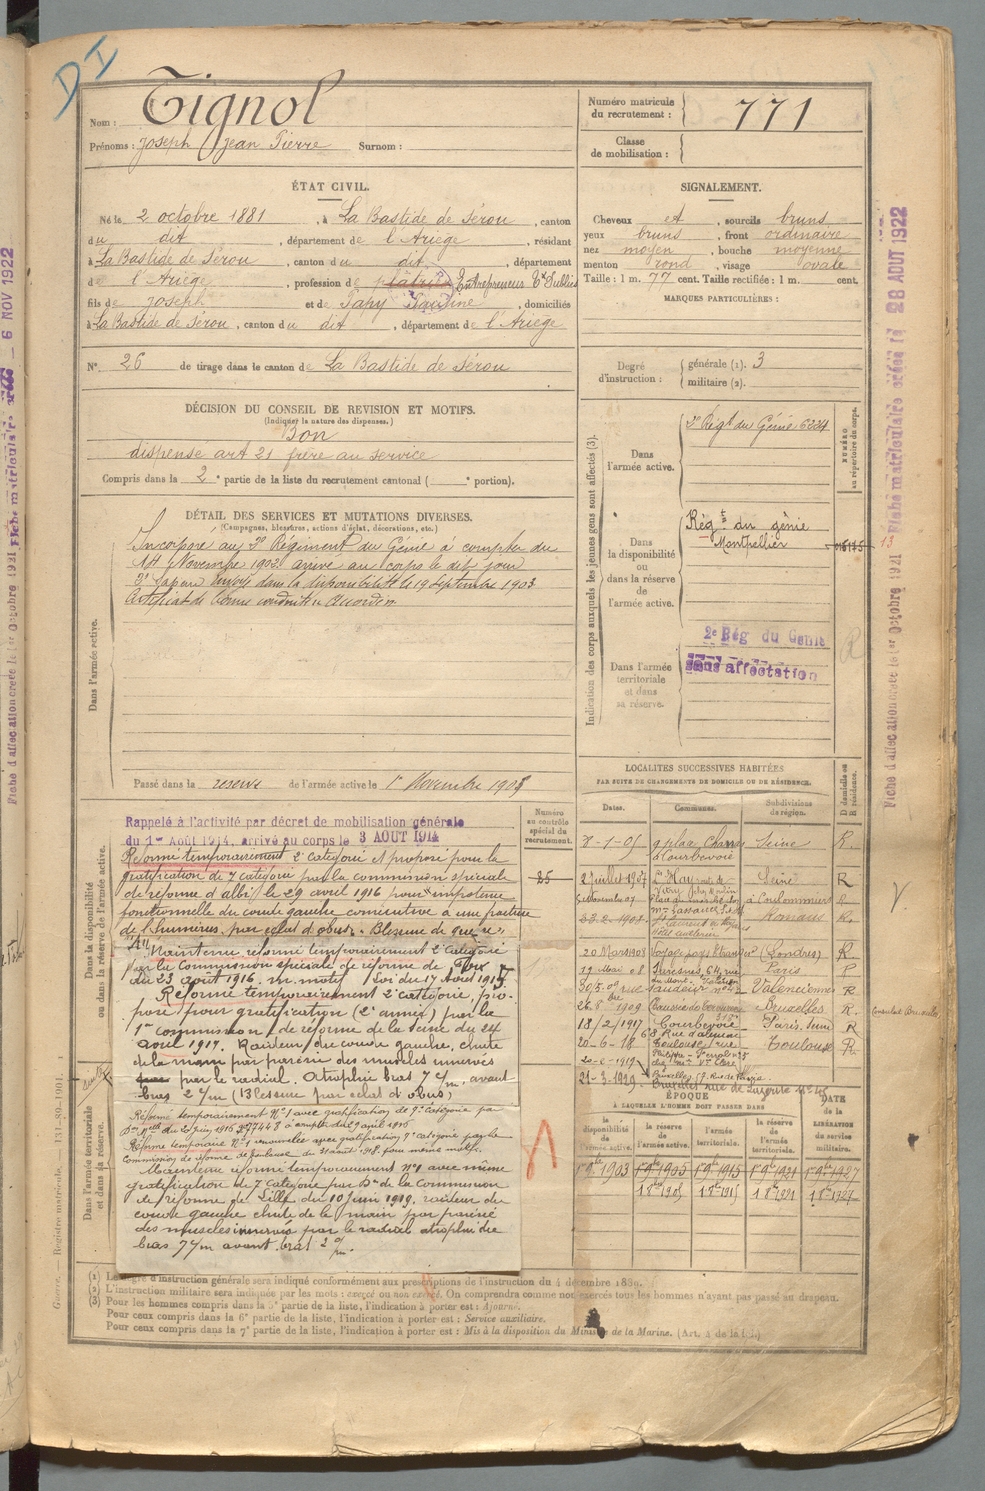 DI
Nom : Tignol
Prénoms : Joseph Jean Pierre Surnom :
Numéro matricule du recrutement : 771
Classe de mobilisation :
ÉTAT CIVIL.
Né le 2 octobre 1881, à La Bastide de Sérou, canton
du dit, département de l'Ariège, résidant
à La Bastide de Sérou, canton du dit, département
de l'Ariège, profession de plâtrier Entrepreneur Tx Publics
fils de Joseph et de Papy Pauline, domiciliés
à La Bastide de Sérou, canton du dit, département de l'Ariège
N° 26 de tirage dans le canton de La Bastide de Sérou
SIGNALEMENT.
Cheveux et, sourcils bruns
yeux bruns, front ordinaire
nez moyen, bouche moyenne
menton rond, visage ovale
Taille : 1 m. 77 cent. Taille rectifiée : 1 m. cent.
MARQUES PARTICULIÈRES :
Degré d'instruction : générale (1). 3
militaire (2).
DÉCISION DU CONSEIL DE REVISION ET MOTIFS.
(Indiquer la nature des dispenses.)
Bon
dispense art 21 frère au service
Compris dans la 2e partie de la liste du recrutement cantonal ( e portion).
DÉTAIL DES SERVICES ET MUTATIONS DIVERSES.
(Campagnes, blessures, actions d'éclat, décorations, etc.)
Dans l'armée active.
Incorporé au 2e Régiment du Génie à compter du
14 Novembre 1902. arrivé au corps le dit jour
2e Sapeur Envoyé dans la disponibilité le 19 Septembre 1903
Certificat de bonne conduite Accordé
Passé dans la réserve de l'armée active le 1er Novembre 1905
Indication des corps auxquels les jeunes gens sont affectés (3).
NUMÉRO au répertoire du corps.
Dans l'armée active.
2e Régt du Génie 6224
Dans la disponibilité ou dans la réserve de l'armée active.
Régt du génie
Montpellier
13
Dans l'armée territoriale et dans sa réserve.
2e Rég du Génie
Sans affectation
R
Dans la disponibilité ou dans la réserve de l'armée active.
Numéro au contrôle spécial du recrutement.
25
Rappelé à l'activité par décret de mobilisation générale
du 1er Août 1914, arrivé au corps le 3 AOUT 1914
Réformé temporairement 2e catégorie et proposé pour la
gratification de 7 catégorie par la commission spéciale
de réforme d'albi le 29 avril 1916 pour impotence
fonctionnelle du coude gauche consécutive à une fracture
de l'humérus, par éclat d'obus. Blessure de guerre.
Maintenu réformé temporairement 2e Catégorie
par la Commission spéciale de réforme de Foix
du 23 août 1916. m. motif
Réformé temporairement 2e catégorie, pro-
posé pour gratification (2e année) par la
1re commission de réforme de la seine du 24
août 1917. Raideur du coude gauche, chute
de la main par parésie des muscles innervés
par le radial. Atrophie bras 7 c/m, avant
bras 2 c/m (Blessure par éclat d'obus)
Réformé temporairement N°1 avec gratification de 7e Catégorie par
Don Mlle du 20 juin 1916 à compter du 29 avril 1916
Réformé temporaire N°1 renouvelée avec gratification 7e Catégorie par la
Commission de réforme de Toulouse du 31 août 1918. pour même motif.
Maintenu réformé temporairement N°1 avec même
gratification de 7 Catégorie par Don de la Commission
de réforme de Lille du 10 juin 1919, raideur du
coude gauche chute de la main par parésie
des muscles innervés par le radial atrophie du
bras 7 c/m avant bras 2 c/m.
Dans l'armée territoriale et dans sa réserve.
A
LOCALITÉS SUCCESSIVES HABITÉES
PAR SUITE DE CHANGEMENTS DE DOMICILE OU DE RÉSIDENCE.
Dates. Communes. Subdivisions de région. D domicile ou R résidence.
8-1-05 9 place Charras à Courbevoie Seine R.
2 Juillet 1907 L'Hay Seine R
à Coulommiers R
23.2.1908 Romans R.
20 Mars 1908 Voyage pays Étranger (Londres) R.
19 Mai 08 Suresnes, 64, rue du Mont-Valérien Paris R
Valenciennes R
1909 Bruxelles R. Consulat Bruxelles
18/2/1917 Courbevoie Paris R
20-6-18 Toulouse Toulouse R.
20-6-1919
21-3-1929
ÉPOQUE
À LAQUELLE L'HOMME DOIT PASSER DANS
la disponibilité de l'armée active. la réserve de l'armée active. l'armée territoriale. la réserve de l'armée territoriale. DATE de la LIBÉRATION du service militaire.
1er 9bre 1903 1er 9bre 1905 1er 9bre 1915 1er 9bre 1921 1er 9bre 1927
1 8bre 1905 1 8bre 1915 1 8bre 1921 1 8bre 1927
(1) Le degré d'instruction générale sera indiqué conformément aux prescriptions de l'instruction du 4 décembre 1889.
(2) L'instruction militaire sera indiquée par les mots : exercé ou non exercé. On comprendra comme non exercés tous les hommes n'ayant pas passé au drapeau.
(3) Pour les hommes compris dans la 5e partie de la liste, l'indication à porter est : Ajourné.
Pour ceux compris dans la 6e partie de la liste, l'indication à porter est : Service auxiliaire.
Pour ceux compris dans la 7e partie de la liste, l'indication à porter est : Mis à la disposition du Ministre de la Marine. (Art. 4 de la loi.)
Guerre. — Registre matricule. 131-89-1901.
Fiche d'affectation créée le 1er Octobre 1921 Fiche matriculaire créée le 28 AOUT 1922
Fiche d'affectation créée le 1er Octobre 1921 Fiche matriculaire créée le — 6 NOV 1922
V.